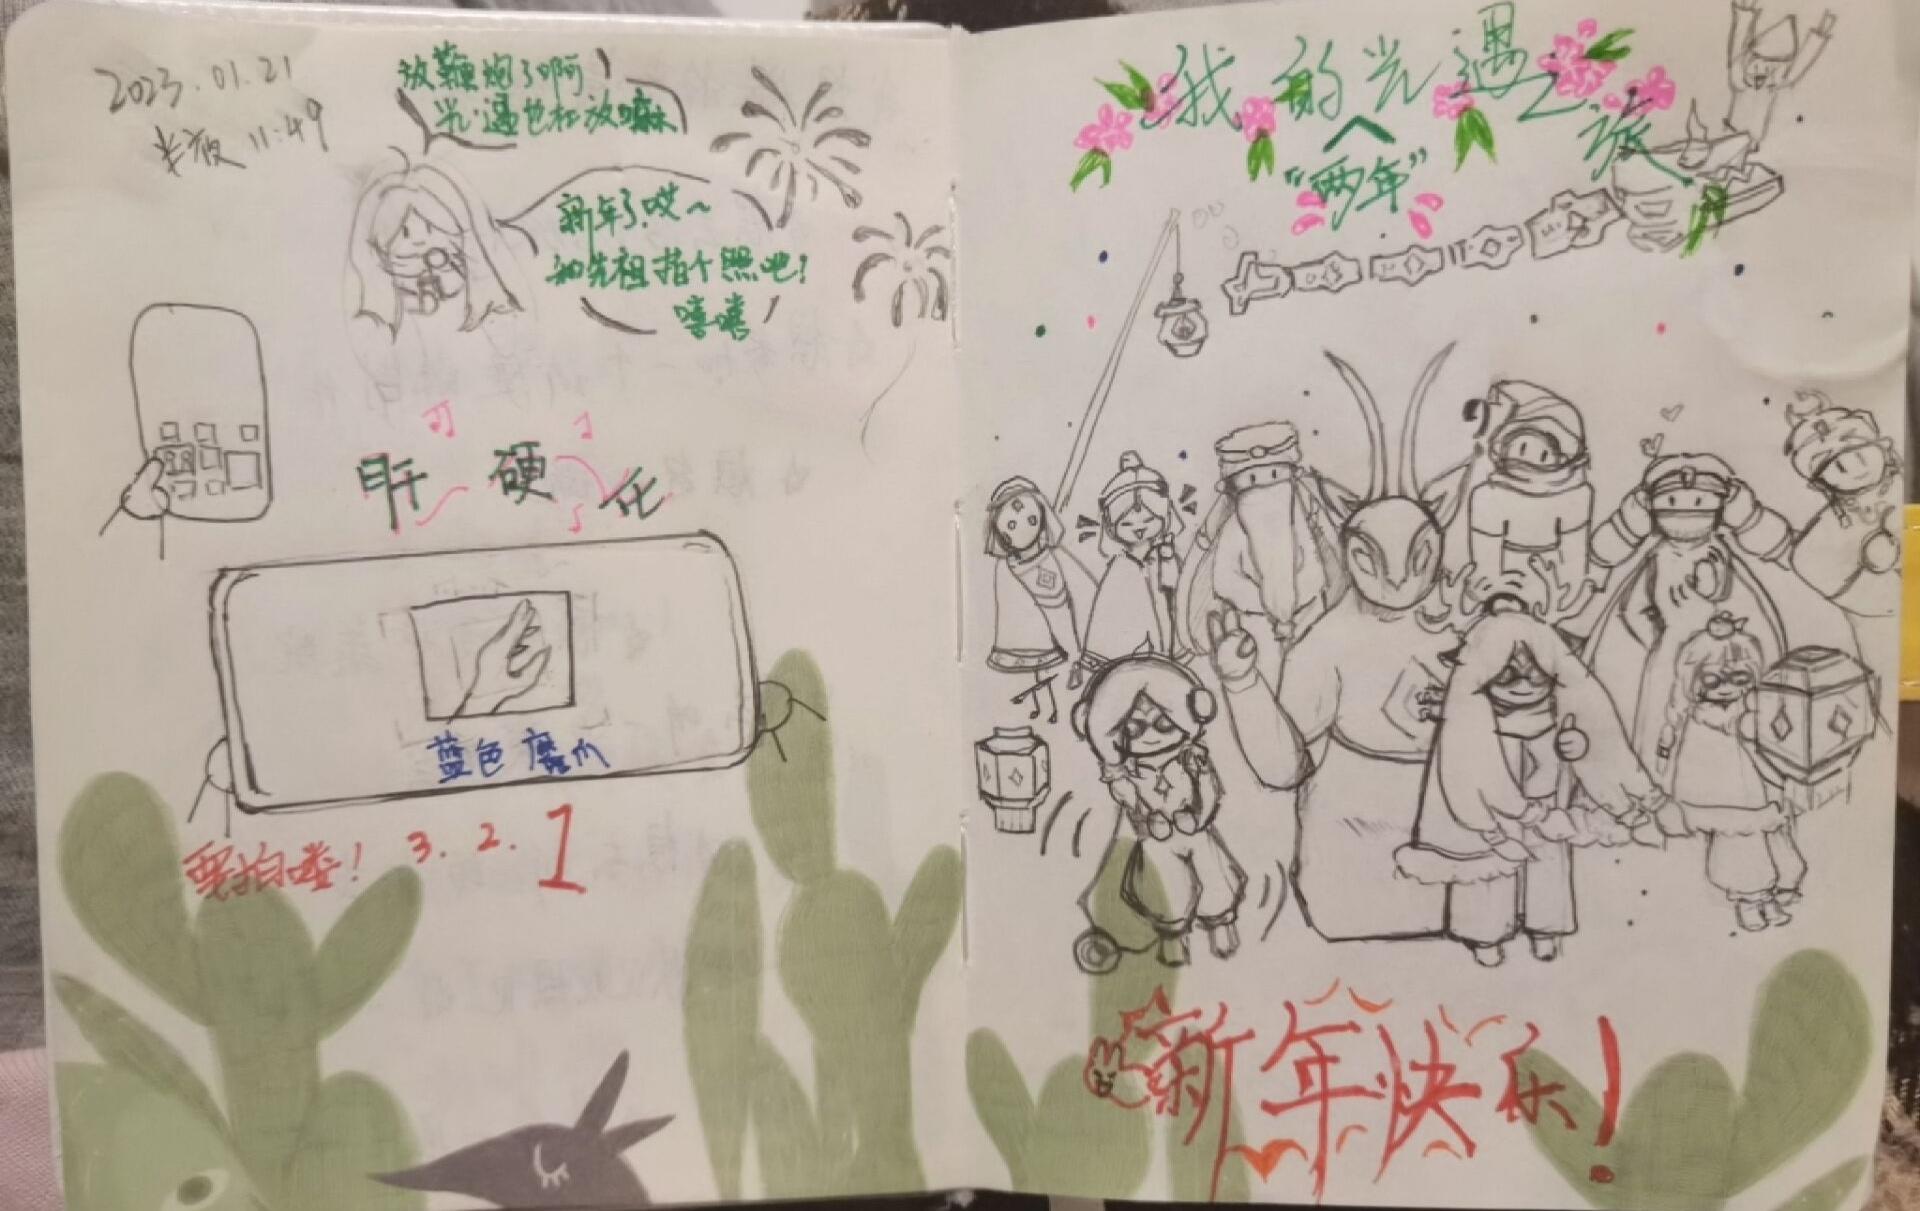 2023.01.21
半夜 11:49
放鞭炮了啊
光·遇也在放嘛
新年了哎~
和先祖拍个照吧!
嘻嘻
肝 硬 化
蓝色魔爪
要拍喽! 3. 2. 1
我的光遇之旅
"两年"
新年快乐!